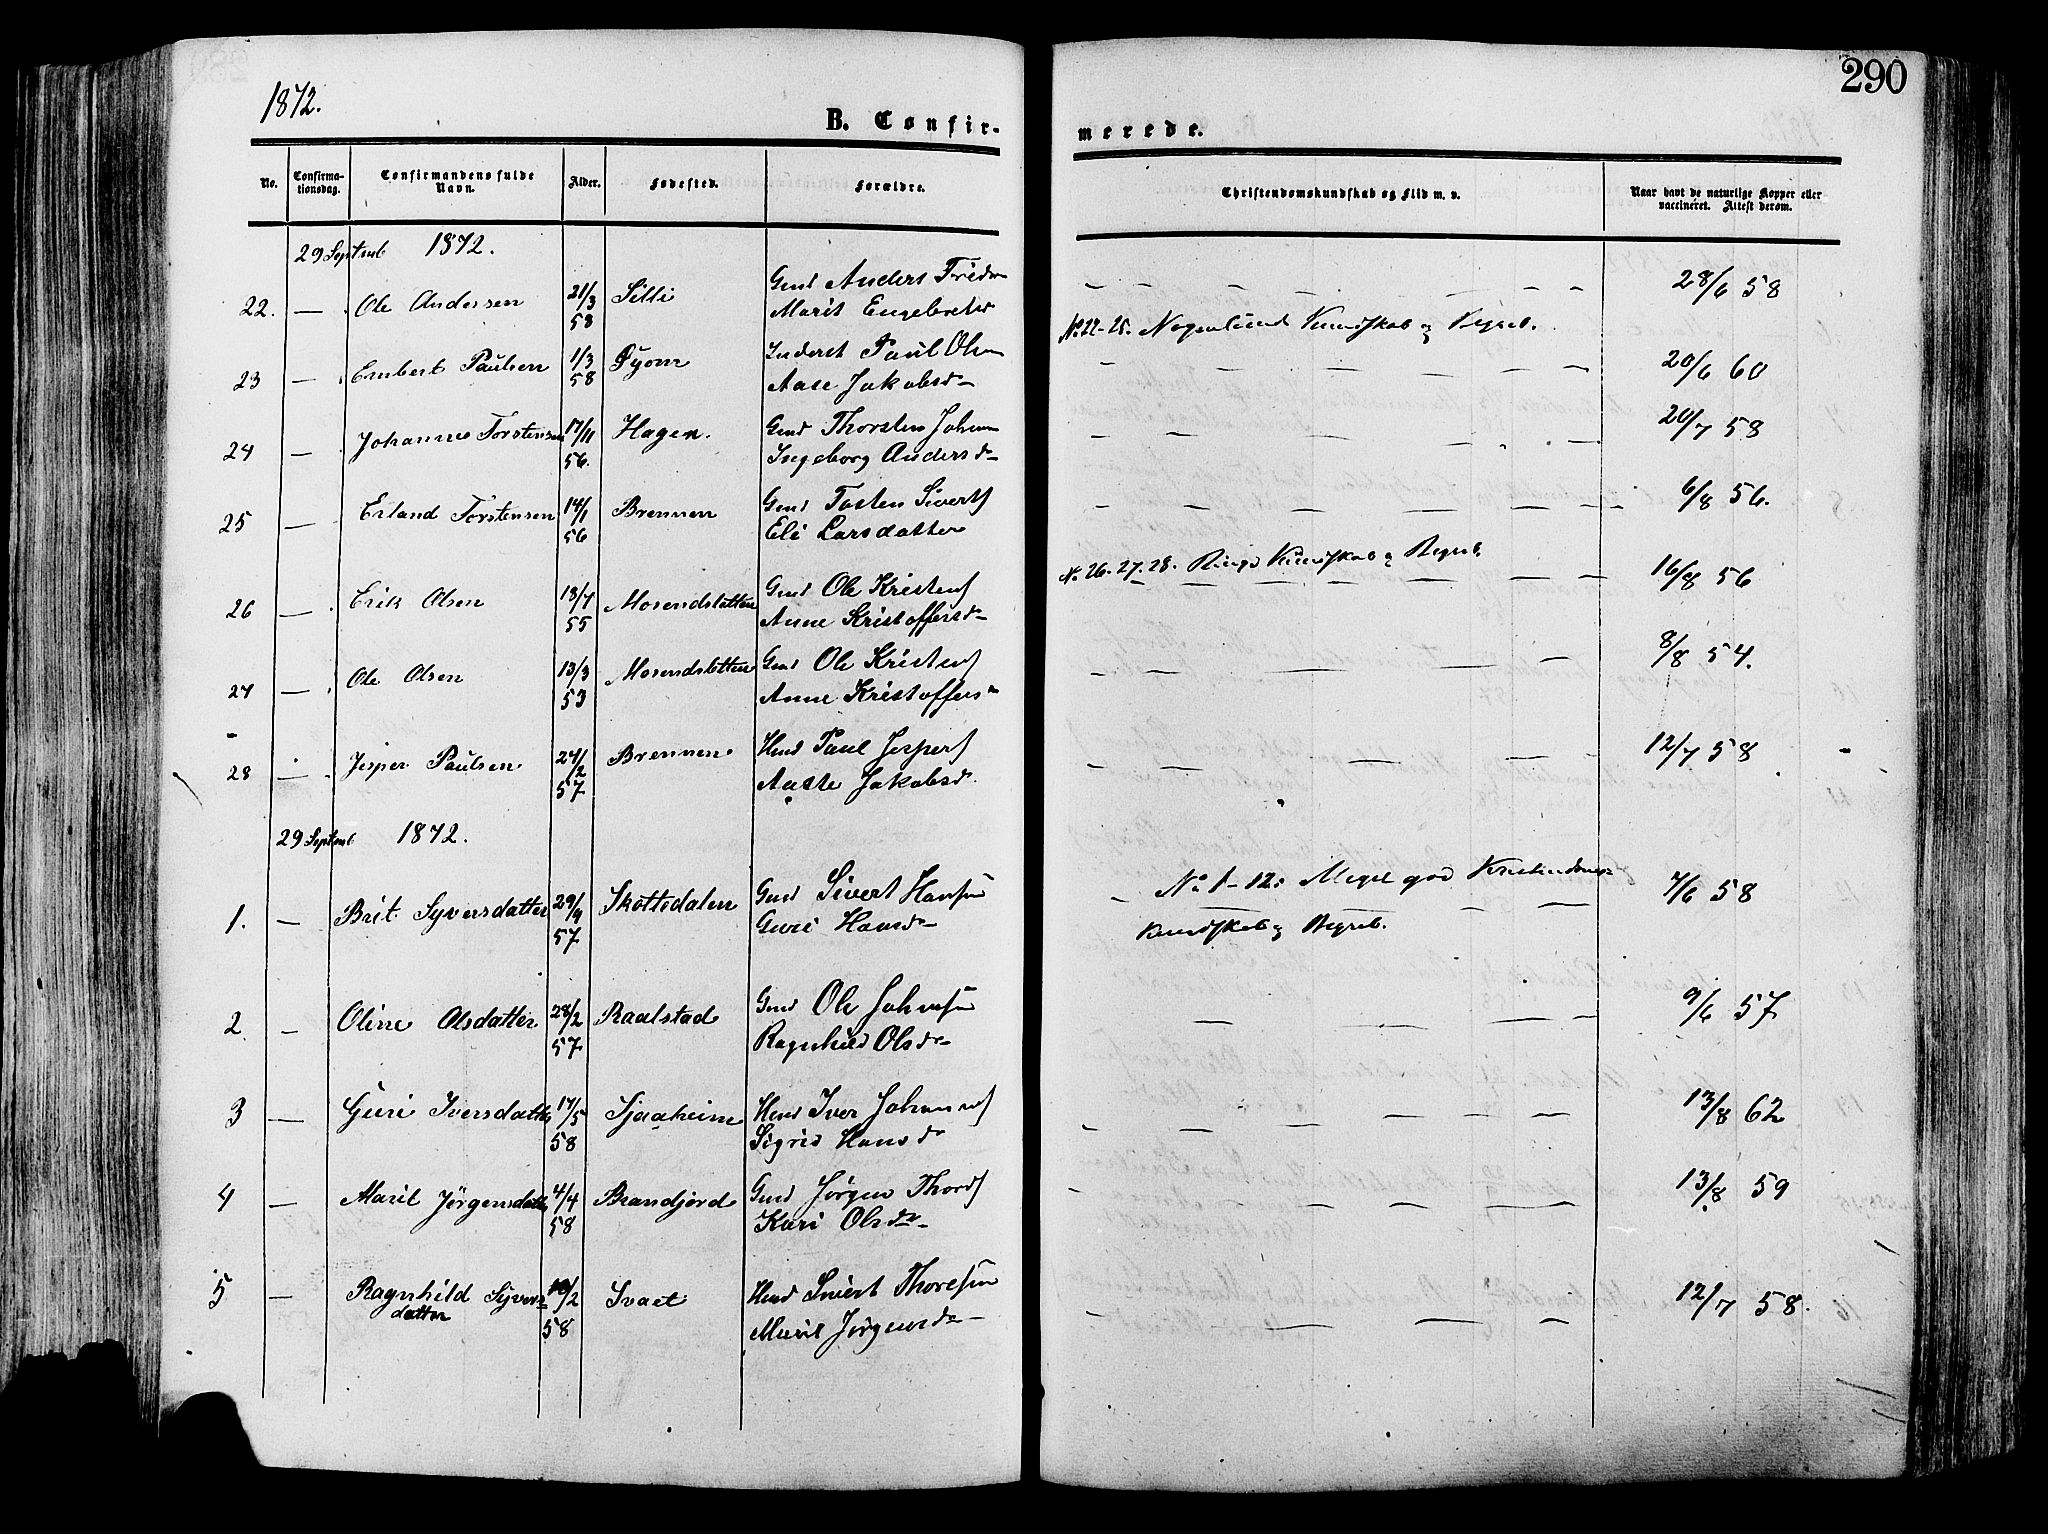 1872.
290
B. Confir-
merede.
No.
Confirma-
tionsdag.
Confirmandens fulde
Navn.
Alder.
Fødested.
Forældre.
Christendomskundskab og Flid m. v.
Naar havt de naturlige Kopper eller
vaccineret. Attest derom.
29 Septemb 1872.
22. — Ole Andersen 21/3 58 Gmd Anders
Marit Engebretsd 28/6 58
No 22-25. Nogenlund Kundskab og Begreb.
23 — Embert Paulsen 1/3 58 Inderst Paul Olsen
Aase Jakobsd 20/6 60
24 — Johannes Torstensen 17/11 56. Hagen. Gmd Thorsten Johnsen
Ingeborg Andersd 20/7 58
25 — Erland Torstensen 14/1 56 Brennen Gmd Tosten Sivertsf
Eli Larsdatter 6/8 56.
No 26. 27. 28. Ringe Kundskab og Begreb.
26 — Erik Olsen 18/7 55 Mosendsletten Gmd Ole Kristensf
Anne Kristoffersd 16/8 56
27 — Ole Olsen 13/3 53 Mosendsletten Gmd Ole Kristensf
Anne Kristoffers 8/8 54.
28 — Jesper Paulsen 24/2 57 Brennen Hmd Paul Jespersf
Aaste Jakobsd. 12/7 58
29 Septemb 1872.
1. — Brit Syversdatter 29/9 57 Skottedalen Gmd Sivert Hansen
Guri Hansd 7/6 58
No 1-12: Meget god Kristendoms-
kundskab og Begreb.
2 — Oline Olsdatter 28/2 57 Raalstad Gmd Ole Johnsen
Ragnhild Olsd 9/6 57
3 — Guri Iversdatter 17/5 58 Sjaaheim Hmd Iver Johannesf
Sigrid Hansd 13/8 62
4 — Marit Jørgensdatter 4/4 58 Brandjord Gmd Jørgen Thordsf
Kari Olsd 13/8 59
5 — Ragnhild Syvers-
datter 58 Svaet Hmd Sivert Thoresen
Marit Jørgensd 12/7 58.